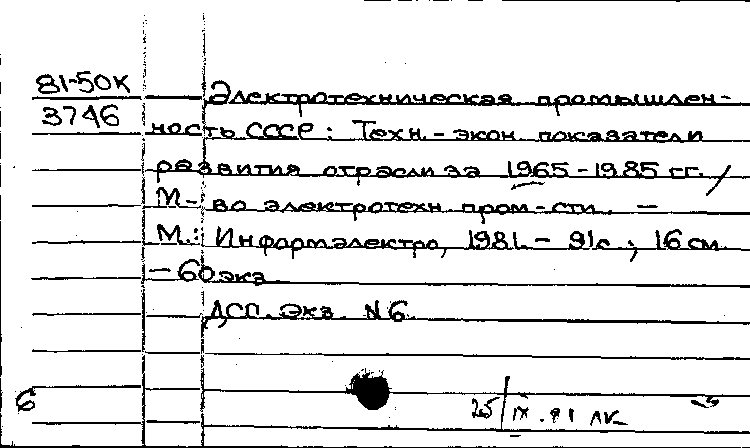 81-50К
3746
Электротехническая промышлен-
ность СССР: Техн.-экон. показатели
развития отрасли за 1965-1985 гг. /
М-во электротехн. пром-сти. —
М.: Информэлектро, 1981. - 91с.; 16 см.
- 60 экз.
ДСП. Экз. №6.
6
25/IX.81